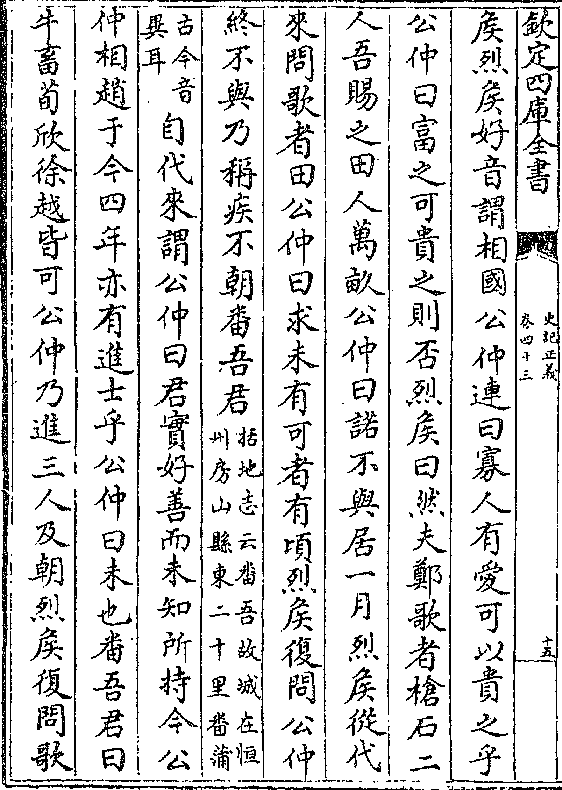 欽定四庫全書
史記正義
卷四十三
十五
矦烈矦好音謂相國公仲連曰寡人有愛可以貴之乎
公仲曰富之可貴之則否烈矦曰然夫鄭歌者槍石二
人吾賜之田人萬畝公仲曰諾不與居一月烈矦從代
來問歌者田公仲曰求未有可者有頃烈矦復問公仲
終不與乃稱疾不朝番吾君括地志云番吾故城在恒
州房山縣東二十里番蒲
古今音
異耳自代來謂公仲曰君實好善而未知所持今公
仲相趙于今四年亦有進士乎公仲曰未也番吾君曰
牛畜荀欣徐越皆可公仲乃進三人及朝烈矦復問歌